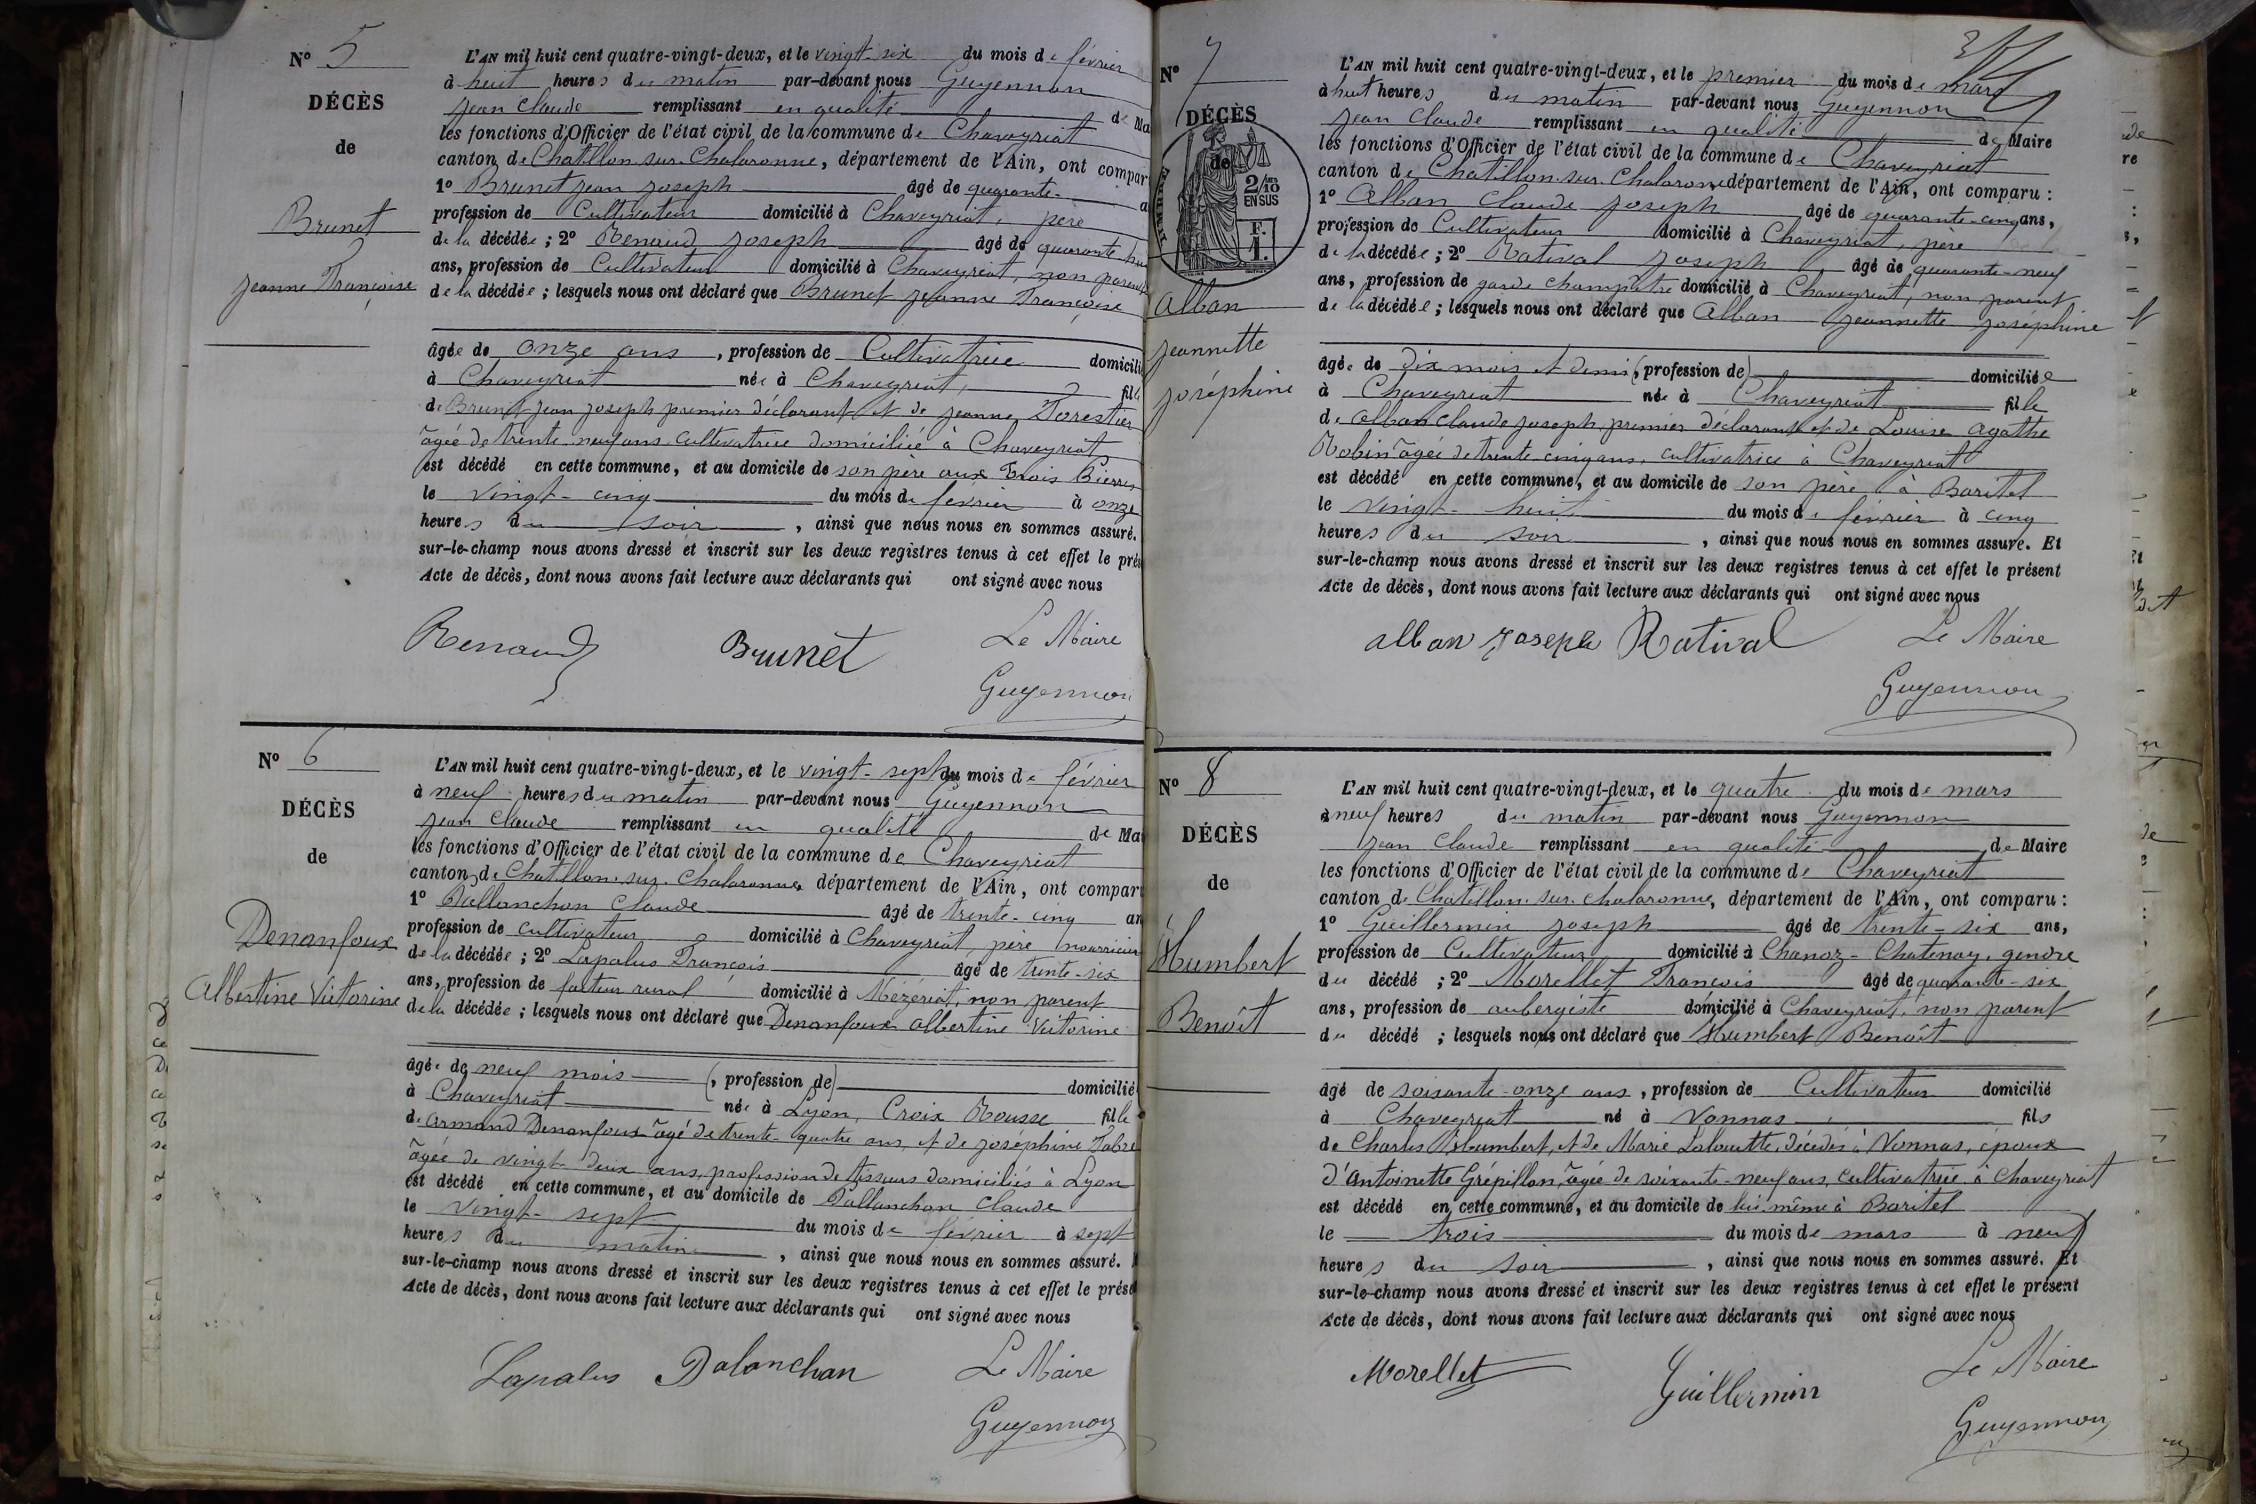 N° 5
DÉCÈS
de
Brunet
Jeanne Françoise
L'AN mil huit cent quatre-vingt-deux, et le vingt-six du mois de février
à huit heures du matin par-devant nous Guyennon
Jean Claude remplissant en qualité de Ma
les fonctions d'Officier de l'état civil de la commune de Chaveyriat
canton de Chatillon sur Chalaronne, département de l'Ain, ont compar
1° Brunet Jean Joseph âgé de quarante- a
profession de Cultivateur domicilié à Chaveyriat, père
de la décédée ; 2° Renaud Joseph âgé de quarante hui
ans, profession de Cultivateur domicilié à Chaveyriat, non parent
de la décédée ; lesquels nous ont déclaré que Brunet Jeanne Françoise
âgée de onze ans, profession de Cultivatrice domicili
à Chaveyriat née à Chaveyriat, fille
de Brunet Jean Joseph premier déclarant et de Jeanne Forestier
âgée de trente-neuf ans cultivatrice domiciliée à Chaveyriat
est décédé en cette commune, et au domicile de son père aux Trois Pierres
le vingt-cinq du mois de février à onze
heures du soir, ainsi que nous nous en sommes assuré.
sur-le-champ nous avons dressé et inscrit sur les deux registres tenus à cet effet le prés
Acte de décès, dont nous avons fait lecture aux déclarants qui ont signé avec nous
Renaud Brunet Le Maire
Guyennon
N° 6
DÉCÈS
de
Denanfoux
Albertine Victorine
L'AN mil huit cent quatre-vingt-deux, et le vingt-sept du mois de février
à neuf heures du matin par-devant nous Guyennon
Jean Claude remplissant en qualité de Mai
les fonctions d'Officier de l'état civil de la commune de Chaveyriat
canton de Chatillon sur Chalaronne, département de l'Ain, ont compar
1° Pallanchon Claude âgé de trente-cinq an
profession de cultivateur domicilié à Chaveyriat, père nourricier
de la décédée ; 2° Lapalus François âgé de trente-six
ans, profession de facteur rural domicilié à Mézériat, non parent
de la décédée ; lesquels nous ont déclaré que Denanfoux Albertine Victorine
âgée de neuf mois (, profession de) domicilié
à Chaveyriat née à Lyon, Croix Rousse fille
de Armand Denanfoux âgé de trente-quatre ans, et de Joséphine Fabre
âgée de vingt-deux ans, profession de tisseurs domiciliés à Lyon
est décédé en cette commune, et au domicile de Pallanchon Claude
le vingt-sept du mois de février à sept
heures du matin, ainsi que nous nous en sommes assuré.
sur-le-champ nous avons dressé et inscrit sur les deux registres tenus à cet effet le prése
Acte de décès, dont nous avons fait lecture aux déclarants qui ont signé avec nous
Lapalus Dalonchan Le Maire
Guyennon
N° 7
DÉCÈS
de
2/10
EN SUS
F.
1.
Alban
Jeannette
Joséphine
L'AN mil huit cent quatre-vingt-deux, et le premier du mois de mars
à huit heures du matin par-devant nous Guyennon
Jean Claude remplissant en qualité de Maire
les fonctions d'Officier de l'état civil de la commune de Chaveyriat
canton de Chatillon sur Chalaronne département de l'Ain, ont comparu :
1° Alban Claude Joseph âgé de quarante-cinq ans,
profession de Cultivateur domicilié à Chaveyriat, père
de la décédée ; 2° Rativat Joseph âgé de quarante-neuf
ans, profession de garde champêtre domicilié à Chaveyriat, non parent
de la décédée ; lesquels nous ont déclaré que Alban Jeannette Joséphine
âgée de dix mois et demi (, profession de) domiciliée
à Chaveyriat née à Chaveyriat fille
de Alban Claude Joseph, premier déclarant et de Louise Agathe
Robin âgée de trente cinq ans, cultivatrice à Chaveyriat
est décédé en cette commune, et au domicile de son père à Baritel
le vingt-huit du mois de février à cinq
heures du soir, ainsi que nous nous en sommes assuré. Et
sur-le-champ nous avons dressé et inscrit sur les deux registres tenus à cet effet le présent
Acte de décès, dont nous avons fait lecture aux déclarants qui ont signé avec nous
alban Joseph Rativat Le Maire
Guyennon
N° 8
DÉCÈS
de
Humbert
Benoît
L'AN mil huit cent quatre-vingt-deux, et le quatre du mois de mars
à neuf heures du matin par-devant nous Guyennon
Jean Claude remplissant en qualité de Maire
les fonctions d'Officier de l'état civil de la commune de Chaveyriat
canton de Chatillon sur Chalaronne, département de l'Ain, ont comparu :
1° Guillermin Joseph âgé de trente-six ans,
profession de Cultivateur domicilié à Chanoz-Chatenay, gendre
du décédé ; 2° Morellet François âgé de quarante-six
ans, profession de aubergiste domicilié à Chaveyriat, non parent
du décédé ; lesquels nous ont déclaré que Humbert Benoît
âgé de soixante-onze ans, profession de Cultivateur domicilié
à Chaveyriat né à Vonnas fils
de Charles Humbert, et de Marie Lalouette, décédés à Vonnas, époux
d'Antoinette Grépillon, âgée de soixante-neuf ans, cultivatrice à Chaveyriat
est décédé en cette commune, et au domicile de lui même à Baritel
le trois du mois de mars à neuf
heures du soir, ainsi que nous nous en sommes assuré. Et
sur-le-champ nous avons dressé et inscrit sur les deux registres tenus à cet effet le présent
Acte de décès, dont nous avons fait lecture aux déclarants qui ont signé avec nous
Morellet Guillermin Le Maire
Guyennon